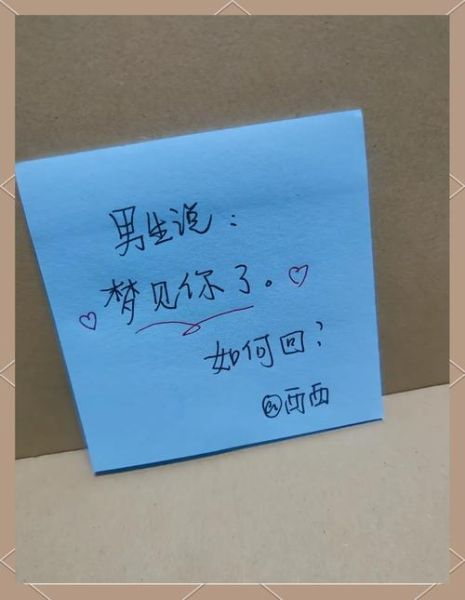 男生说：
梦见你了。
如何回？
@西西